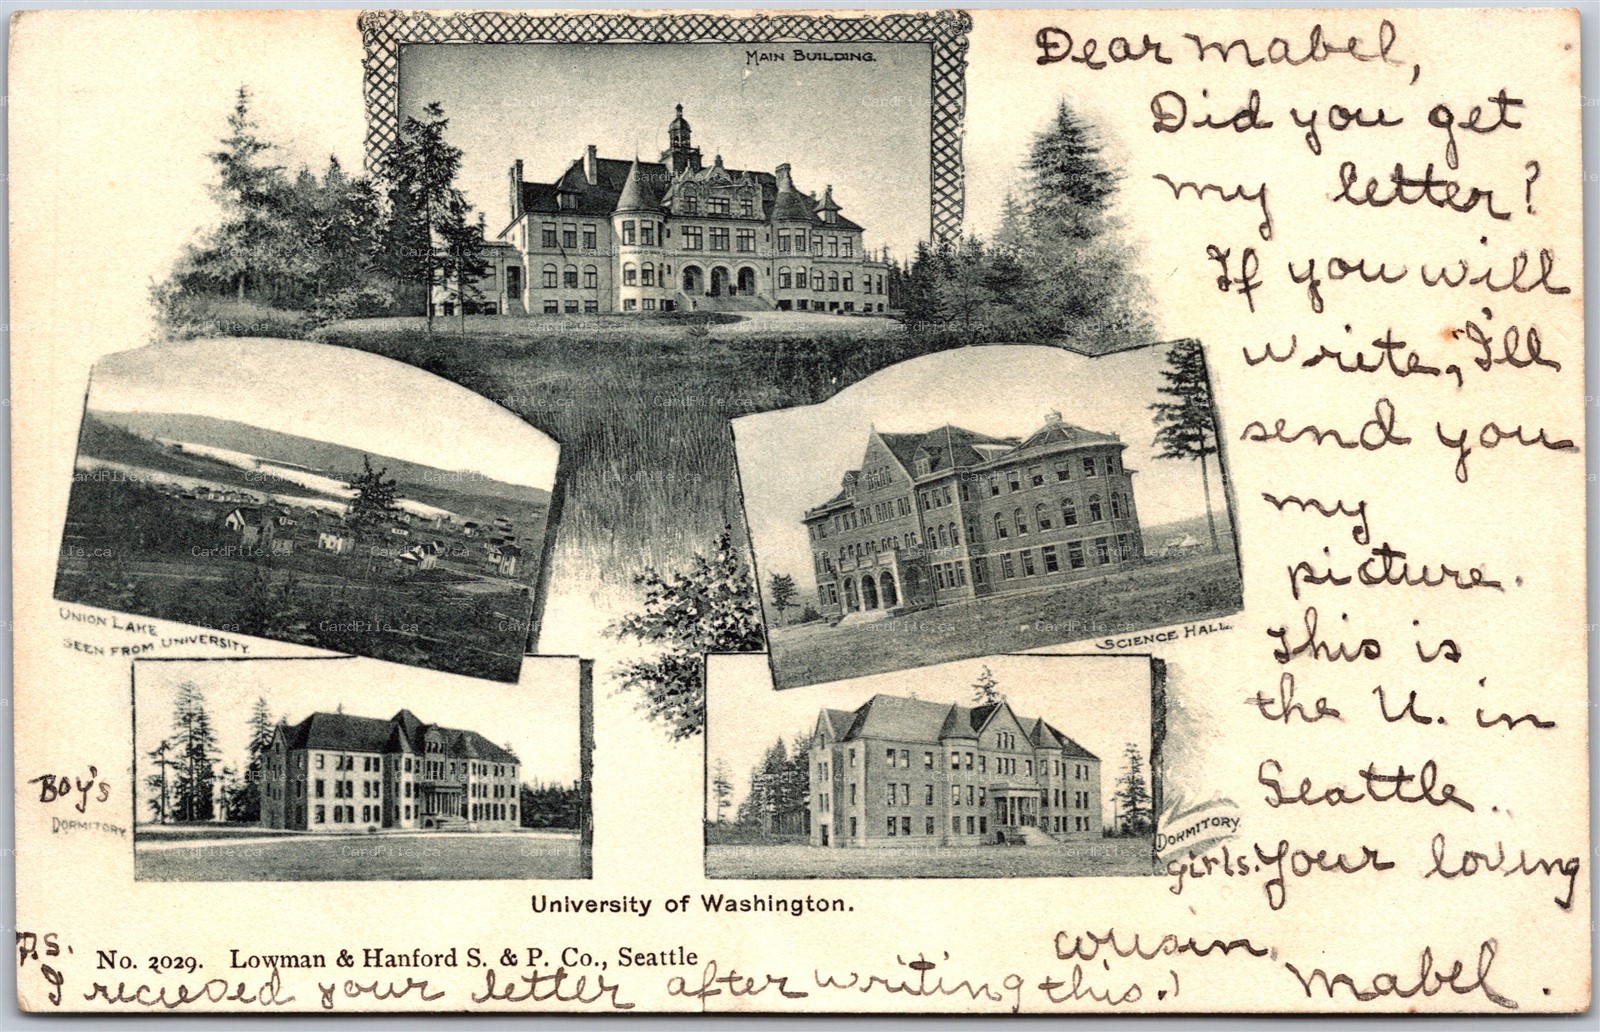 MAIN BUILDING.
Dear Mabel,
Did you get
my letter?
If you will
write, I'll
send you
my
picture.
This is
the U. in
Seattle.
Your loving
cousin,
Mabel.
UNION LAKE
SEEN FROM UNIVERSITY.
SCIENCE HALL.
Boy's
DORMITORY
DORMITORY.
girls.
University of Washington.
P.S.
No. 2029. Lowman & Hanford S. & P. Co., Seattle
I recieved your letter after writing this.)
CardPile.ca